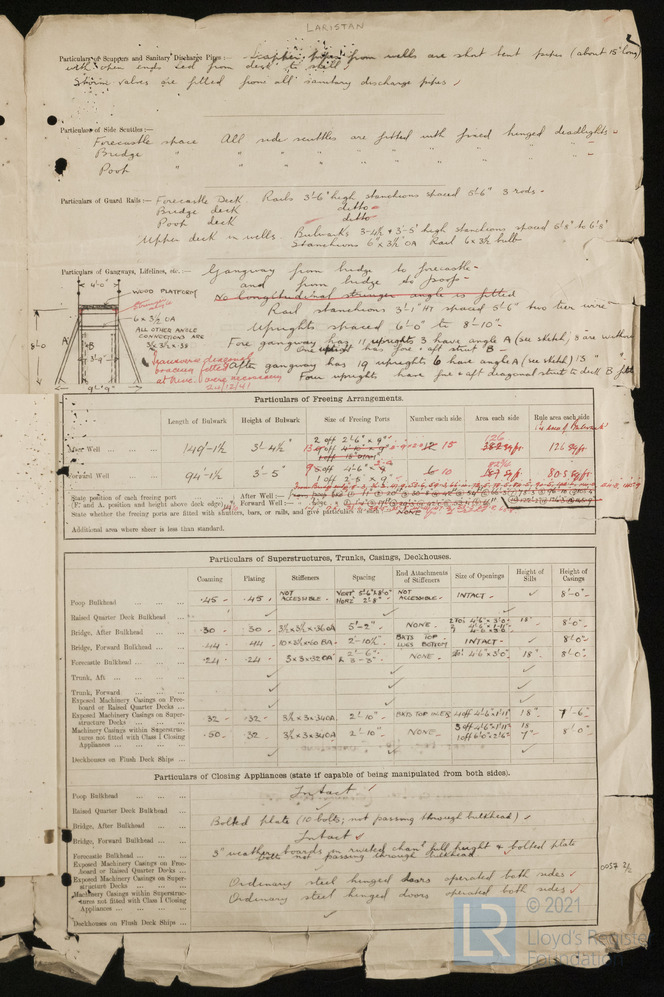 LARISTAN
2
Particulars of Scuppers and Sanitary Discharge Pipes :— Scupper pipes from wells are short bent pipes (about 15" long)
with open ends led from deck to shell.
Storm valves are fitted from all sanitary discharge pipes ✓
Particulars of Side Scuttles :—
Forecastle space All side scuttles are fitted with fixed hinged deadlights
Bridge " " " " " " "
Poop " " " " " " "
Particulars of Guard Rails :— Forecastle Deck. Rails 3'-6" high stanchions spaced 5'-6" 3 rods
Bridge deck ditto
Poop deck ditto
Upper deck in wells. Bulwarks 3'-4½" & 3'-5" high stanchions spaced 5'8" to 6'8"
Stanchions 6" x 3½" OA Rail 6 x 3½ bulb
Particulars of Gangways, Lifelines, etc. :— Gangway from bridge to forecastle
and from bridge to poop
No longitudinal stringer angle is fitted
Rail stanchions 3'-1" HT spaced 5'-6" two tier wire
Uprights spaced 6'-0" to 8'-10"
Fore gangway has 11 uprights 3 have angle A (see sketch) 8 are without
One upright has fore & aft strut B
After gangway has 19 uprights 6 have angle A (see sketch) 13 " "
Four uprights have fore & aft diagonal strut to deck B fitted
4'-0"
WOOD PLATFORM
6 x 3½ OA
ALL OTHER ANGLE
CONNECTIONS ARE
3½ x 3½ x .38
8'-0
A
B
3'-9"
9'-9"
Transverse diagonal
bracing fitted
at three. were necessary
24/12/41
Particulars of Freeing Arrangements.
Length of Bulwark Height of Bulwark Size of Freeing Ports Number each side Area each side Rule area each side
After Well 149'-1½ 3'-4½" 2 off 2'-6" x 9" 15 126 126 sq ft
Forward Well 94'-1½ 3'-5" 9 off 4'-6" 10 80.5 sq ft
1 off 2'-5 x 9"
State position of each freeing port ... ... ... After Well :—
(F. and A. position and height above deck edge) Forward Well :—
State whether the freeing ports are fitted with shutters, bars, or rails, and give particulars NONE
Additional area where sheer is less than standard.
Particulars of Superstructures, Trunks, Casings, Deckhouses.
Coaming Plating Stiffeners Spacing End Attachments of Stiffeners Size of Openings Height of Sills Height of Casings
Poop Bulkhead ... ... ... .45 .45 NOT ACCESSIBLE VERT 5'-6" & 8'-0" HORZ 2'-8" NOT ACCESSIBLE INTACT ✓ 8'-0"
Raised Quarter Deck Bulkhead ... ✓ ✓
Bridge, After Bulkhead ... ... .30 .30 3½ x 3½ x .36 OA 5'-2" NONE 18" 8'-0"
Bridge, Forward Bulkhead ... ... .44 .44 10 x 3½ x .60 BA 2'-10½" BKTS TOP LUGS BOTTOM INTACT ✓ 8'-0"
Forecastle Bulkhead ... ... .24 .24 3 x 3 x .32 OA 2'-6" & 3'-3" NONE 4'-6" x 3'-0" 18" 8'-0"
Trunk, Aft ... ... ... ✓ ✓ ✓
Trunk, Forward ... ... ... ✓ ✓ ✓
Exposed Machinery Casings on Free-
board or Raised Quarter Decks ... ✓ ✓ ✓
Exposed Machinery Casings on Super-
structure Decks ... ... .32 .32 3½ x 3 x .34 OA 2'-10" BKTS TOP 4 off 4'-6" x 1'-11" 18" 7'-6"
Machinery Casings within Superstruc-
tures not fitted with Class I Closing
Appliances ... ... ... .50 .32 3½ x 3 x .34 OA 2'-10" NONE 3 off 4'-6" x 1'-11" 1 off 6'-0" x 2'-6" 18 7" 8'-0"
Deckhouses on Flush Deck Ships ...
Particulars of Closing Appliances (state if capable of being manipulated from both sides).
Poop Bulkhead ... ... ... Intact ✓
Raised Quarter Deck Bulkhead ...
Bridge, After Bulkhead ... ... Bolted plate (10 bolts; not passing through bulkhead) ✓
Bridge, Forward Bulkhead ... ... Intact ✓
Forecastle Bulkhead ... ... 3" weather boards in riveted chanl full height & bolted plate
bolts not passing through bulkhead
Exposed Machinery Casings on Free-
board or Raised Quarter Decks ...
Exposed Machinery Casings on Super-
structure Decks ... ... Ordinary steel hinged doors operated both sides ✓
Machinery Casings within Superstruc-
tures not fitted with Class I Closing
Appliances ... ... Ordinary steel hinged doors operated both sides ✓
Deckhouses on Flush Deck Ships ... ✓
0057 2/2
LR
© 2021
Lloyd's Register
Foundation